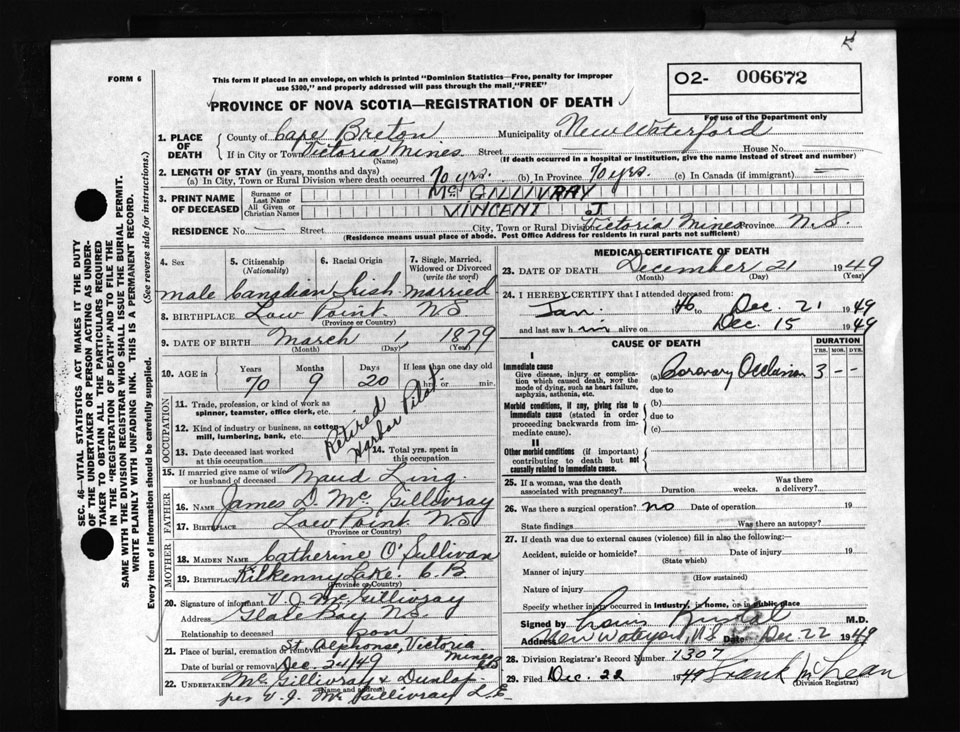 FORM 6
This form if placed in an envelope, on which is printed "Dominion Statistics—Free, penalty for improper
use $300," and properly addressed will pass through the mail, "FREE"
O2- 006672
PROVINCE OF NOVA SCOTIA—REGISTRATION OF DEATH
For use of the Department only
1. PLACE OF DEATH
County of Cape Breton Municipality of New Waterford
If in City or Town Victoria Mines Street House No.
(Name) (If death occurred in a hospital or institution, give the name instead of street and number)
2. LENGTH OF STAY (in years, months and days)
(a) In City, Town or Rural Division where death occurred 70 yrs. (b) In Province 70 yrs. (c) In Canada (if immigrant)
3. PRINT NAME OF DECEASED
Surname or Last Name Mc GILLIVRAY
All Given or Christian Names VINCENT J
RESIDENCE No. Street City, Town or Rural Division Victoria Mines Province N.S.
(Residence means usual place of abode. Post Office Address for residents in rural parts not sufficient)
4. Sex
5. Citizenship (Nationality)
6. Racial Origin
7. Single, Married, Widowed or Divorced (write the word)
male Canadian Irish married
8. BIRTHPLACE Low Point N.S.
(Province or Country)
9. DATE OF BIRTH March 1, 1879
(Month) (Day) (Year)
10. AGE Years Months Days If less than one day old
70 9 20 hrs. or min.
OCCUPATION
11. Trade, profession, or kind of work as
spinner, teamster, office clerk, etc.
12. Kind of industry or business, as cotton
mill, lumbering, bank, etc.
Retired
Harbor Pilot
13. Date deceased last worked
at this occupation
14. Total yrs. spent in
this occupation
15. If married give name of wife
or husband of deceased Maud Ling
FATHER
16. NAME James D. Mc Gillivray
17. BIRTHPLACE Low Point N.S
(Province or Country)
MOTHER
18. MAIDEN NAME Catherine O'Sullivan
19. BIRTHPLACE Kilkenny Lake. C.B.
(Province or Country)
20. Signature of informant V. J. Mc Gillivray
Address Glace Bay N.S.
Relationship to deceased son
21. Place of burial, cremation or removal St Alphonse, Victoria
Mines C.B.
Date of burial or removal Dec. 24/49
22. UNDERTAKER Mc Gillivray & Dunlop
(Name and address)
per V. J. Mc Gillivray L.E.
MEDICAL CERTIFICATE OF DEATH
23. DATE OF DEATH December 21 1949
(Month) (Day) (Year)
24. I HEREBY CERTIFY that I attended deceased from:
Jan. 46 to Dec. 21 1949
and last saw him alive on Dec. 15 1949
CAUSE OF DEATH
DURATION
YRS. MOS. DYS.
I
Immediate cause
Give disease, injury or complication
which caused death, NOT the
mode of dying, such as heart failure,
asphyxia, asthenia, etc.
(a) Coronary Occlusion 3 – –
due to
Morbid conditions, if any, giving rise to
immediate cause (stated in order
proceeding backwards from immediate
cause).
(b)
due to
(c)
II
Other morbid conditions (if important)
contributing to death but not
causally related to immediate cause.
25. If a woman, was the death
associated with pregnancy? Duration weeks. Was there
a delivery?
26. Was there a surgical operation? no Date of operation 19
State findings Was there an autopsy?
27. If death was due to external causes (violence) fill in also the following:—
Accident, suicide or homicide? Date of injury 19
(State which)
Manner of injury
(How sustained)
Nature of injury
Specify whether injury occurred in industry, in home, or in public place
Signed by Louis M.D.
Address New Waterford, N.S. Date Dec 22 1949
28. Division Registrar's Record Number 1307
29. Filed Dec. 22 1949 Frank McLean
(Division Registrar)
SEC. 46—VITAL STATISTICS ACT MAKES IT THE DUTY
OF THE UNDERTAKER OR PERSON ACTING AS UNDERTAKER
TO OBTAIN ALL THE PARTICULARS REQUIRED
IN THE "REGISTRATION OF DEATH" AND TO FILE THE
SAME WITH THE DIVISION REGISTRAR WHO SHALL ISSUE THE BURIAL PERMIT.
WRITE PLAINLY WITH UNFADING INK. THIS IS A PERMANENT RECORD.
Every item of information should be carefully supplied. (See reverse side for instructions.)